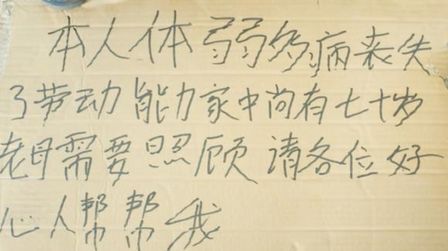 本人体弱多病丧失
了劳动能力家中尚有七十岁
老母需要照顾请各位好
心人帮帮我